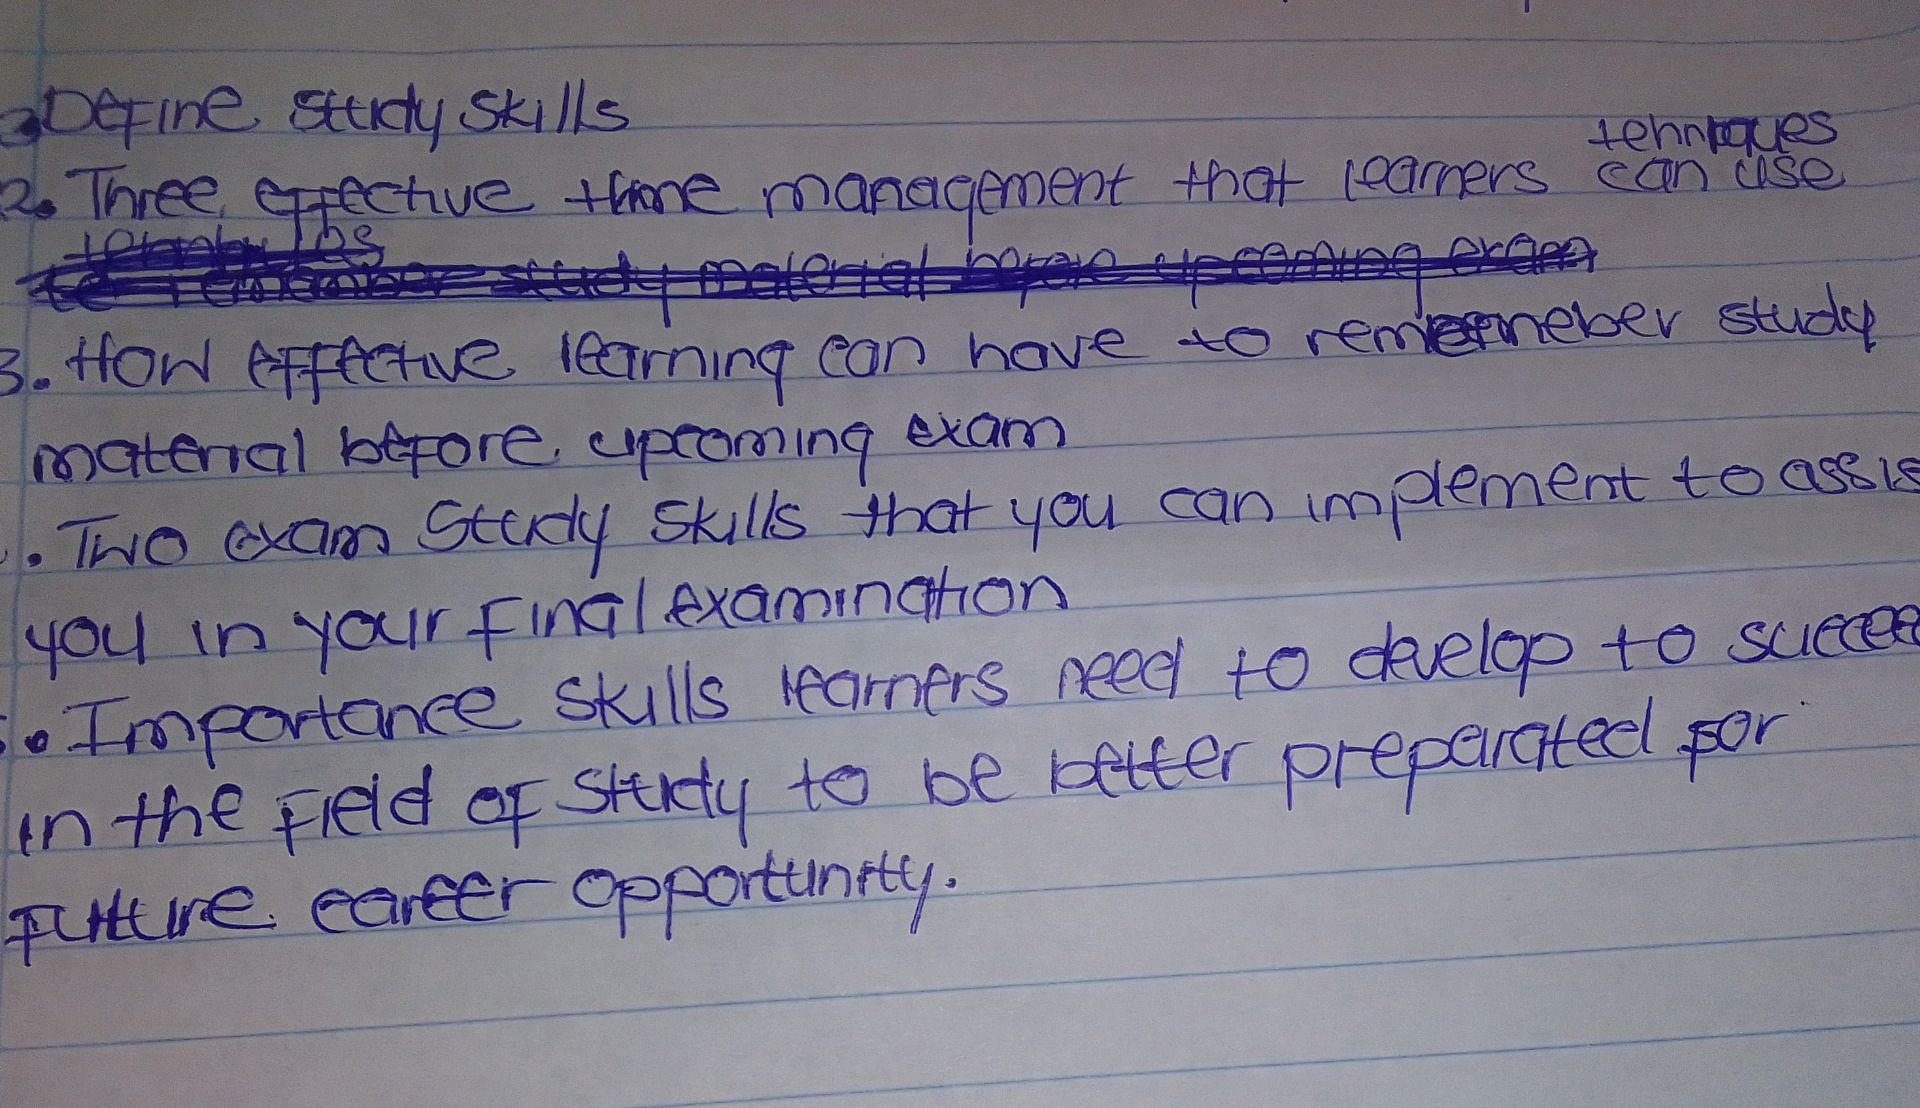 Define study skills
tehniques
2. Three effective time management that learners can use
3. How effective learning can have to rememeber study
material before upcoming exam
. Two exam Study Skills that you can implement to assis
you in your final examination
. Importance skills learners need to develop to succee
in the field of study to be better preparated for
future career opportunity.